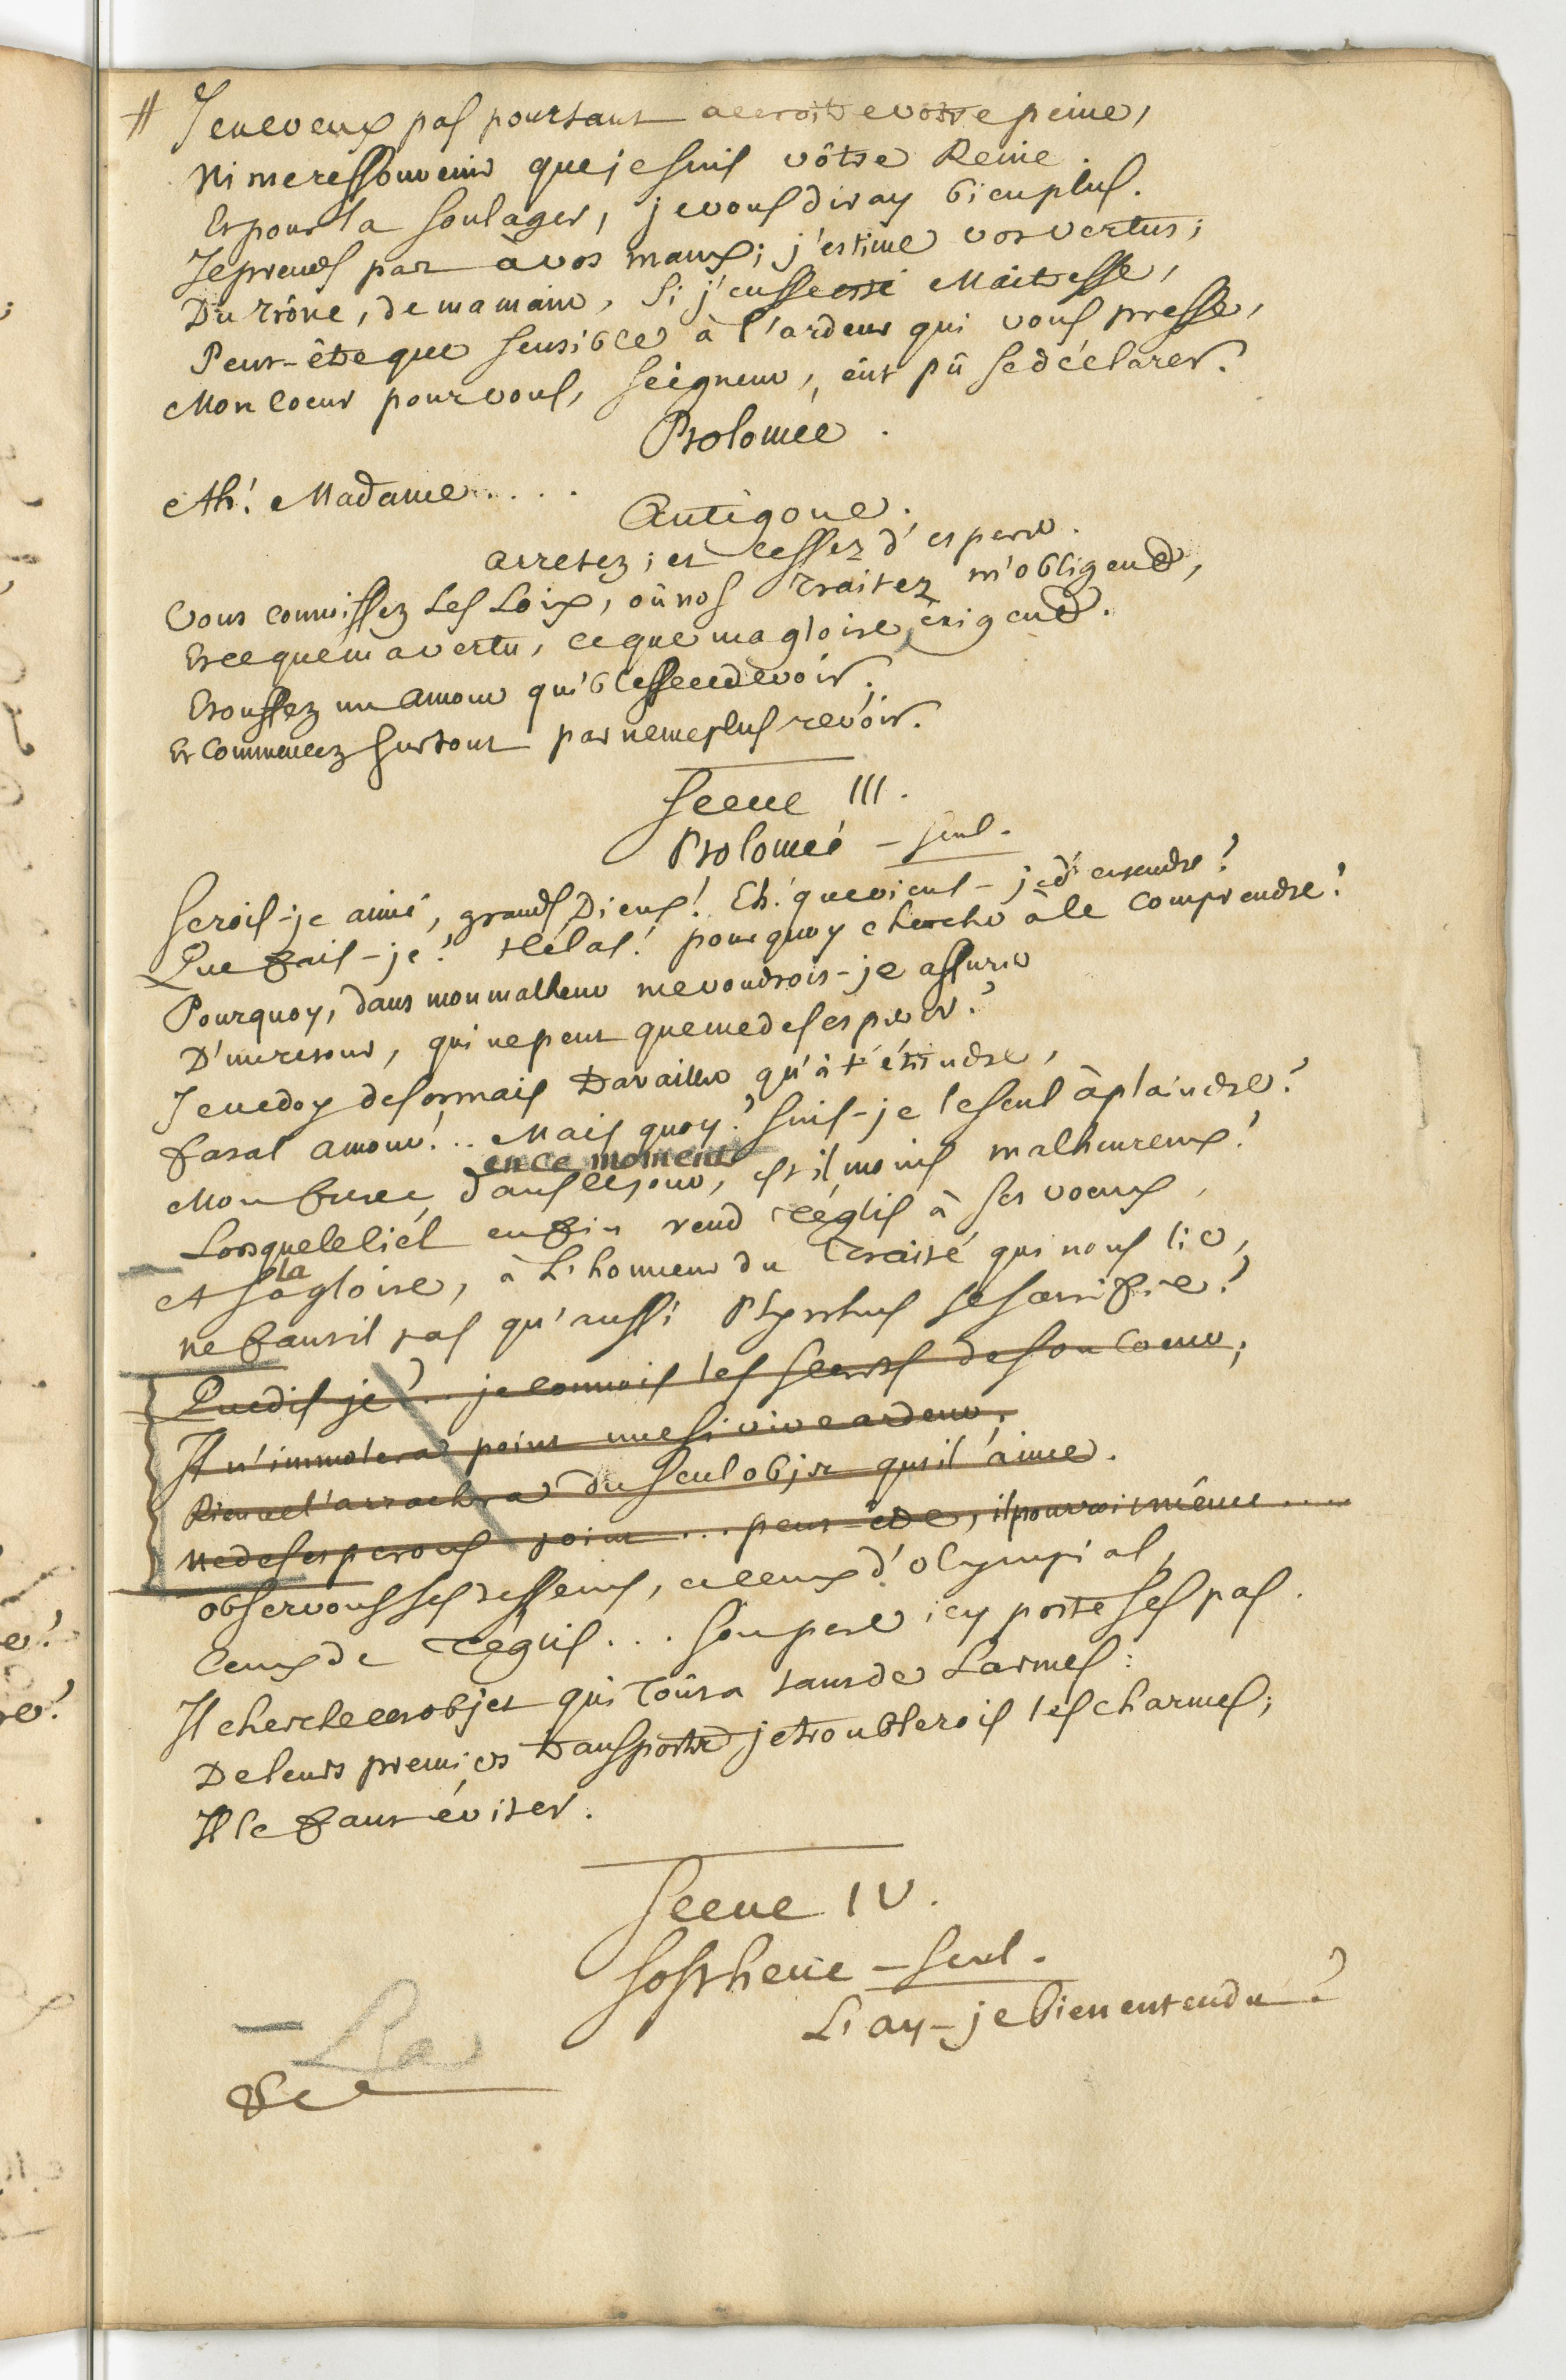 # Je ne veux pas pourtant accroitre votre peine,
Ni me ressouvenir que je suis vôtre Reine.
Et pour la soulager, je vous diray bien plus.
Je prends part à vos maux; j'estime vos vertus;
Du trône, de ma main, si j'eusse esté Maitresse,
Peut-être que sensible à l'ardeur qui vous presse,
Mon coeur pour vous, Seigneur, eût pû se déclarer.
Ptolomée.
Ah! Madame....
Antigone.
arretez; et cessez d'esperer.
Vous connoissez les Loix, où nos traitez m'obligent,
Et ce que ma vertu, ce que ma gloire exigent.
Etouffez un amour qui blesse ce devoir.
Et commencez surtout par ne me plus revoir.
Scene III.
Ptolomée - seul.
Serois-je aimé, grands Dieux! Eh! que viens-je d'entendre?
Que fais-je? Hélas! pourquoy chercher à le comprendre?
Pourquoy, dans mon malheur me voudrois-je assurer
D'un retour, qui ne peut que me desesperer?
Je ne doy desormais travailler qu'à t'éteindre,
fatal amour!.. Mais quoy? suis-je le seul à plaindre?
en ce moment
Mon frere, dans ce jour, est il moins malheureux?
Lorsque le Ciel enfin rend Téglis à ses voeux,
la
A sa gloire, à L'honneur du Traité qui nous lie,
ne faut il pas qu'aussi Pyrrhus se sacrifie?
Que dis je?.. je connois les secrets de son coeur;
Il n'immolera point une si vive ardeur,
Rien ne l'arrachera du seul objet qu'il aime.
Ne desesperons point... peut-être, il pourroit même....
observons ses desseins, ceux d'olympias,
Ceux de Téglis... son pere icy porte ses pas.
Il cherche cet objet qui coûta tant de Larmes:
De leurs premiers transports je troublerois les charmes;
Il le faut éviter.
Scene IV.
Sosthene - seul.
L'ay-je bien entendu?